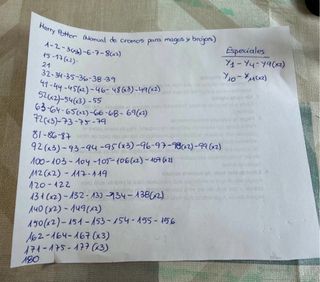 Harry Potter (Manual de cromos para magos y brujos)
1-2-3(x2)-6-7-8(x2)
15-17(x2)-
21
32-34-35-36-38-39
41-44-45(x2)-46-48(x3)-49(x2)
52(x2)-54(x3)-55
63-64-65(x2)-66-68-69(x2)
72(x3)-73-75-79
81-86-87
92(x3)-93-94-95(x3)-96-97-98(x2)-99(x2)
100-103-104-105-106(x2)-109(x2)
112(x2)-117-119
120-122
131(x2)-132-133-134-138(x2)
140(x2)-149(x2)
150(x2)-151-153-154-155-156
162-164-167(x3)
171-175-177(x3)
180
Especiales
Y1-Y4-Y9(x2)
Y10-Y11(x2)